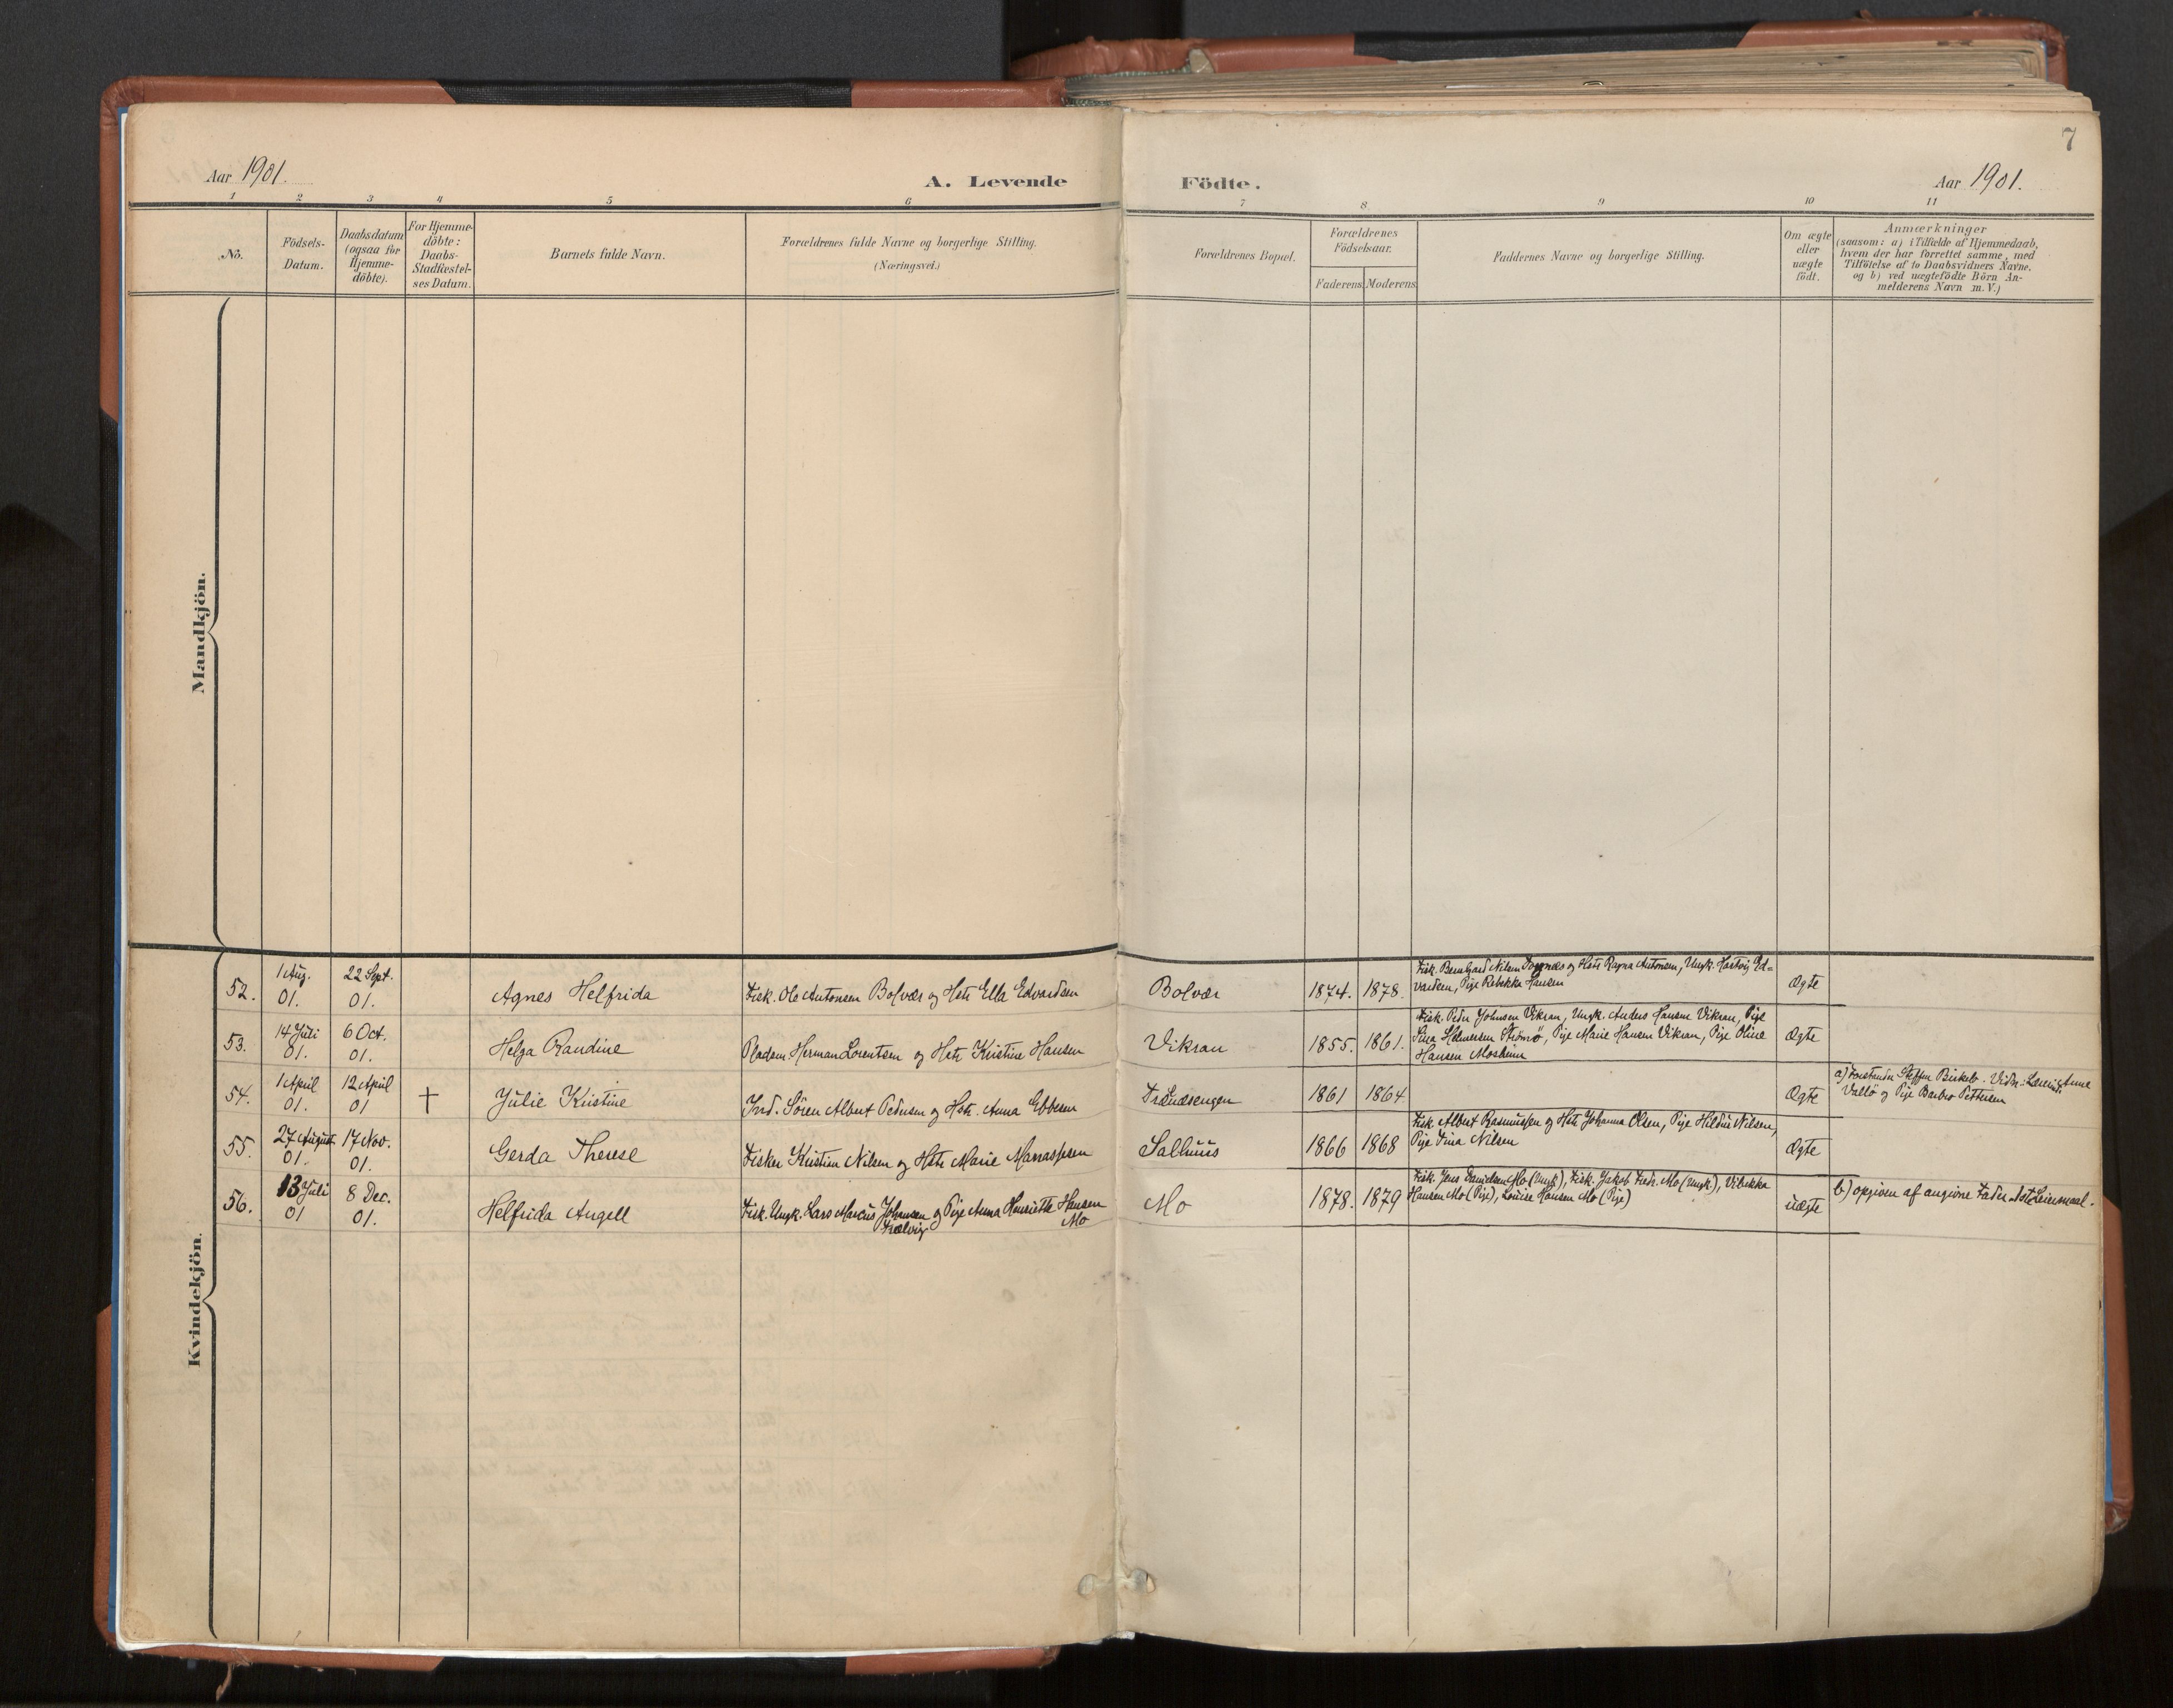 7
Aar 1901.
A. Levende
Födte.
Aar 1901.
1 2 3 4 5 6 7 8 9 10 11
No.
Födsels-
Datum.
Daabsdatum
(ogsaa for
Hjemme-
döbte).
For Hjemme-
döbte:
Daabs-
Stadfæstel-
ses Datum.
Barnets fulde Navn.
Forældrenes fulde Navne og borgerlige Stilling.
(Næringsvei.)
Forældrenes Bopæl.
Forældrenes
Födselsaar.
Faderens. Moderens.
Faddernes Navne og borgerlige Stilling.
Om ægte
eller
uægte
födt.
Anmærkninger
(saasom: a) i Tilfælde af Hjemmedaab,
hvem der har forrettet samme, med
Tilföielse af to Daabsvidners Navne,
og b) ved uægtefödte Börn An-
melderens Navn m. V.)
Mandkjön.
Kvindekjön.
52.
1 Aug.
01.
22 Sept.
01.
Agnes Helfrida
Fisk. Ole Antonsen Bolvær og Hstr Ella Edvardsen
Bolvær
1874. 1878.
Fisk. Bernhard Nilsen og Hstr Ragna Antonsen, Ungk. Hartvig Ed=
vardsen, Pige Rebekka Hansen
Ægte
53.
14 Juli
01.
6 Oct.
01.
Helga Randine
Pladsm. Herman Lorentsen og Hstr Kristine Hansen
Vikran
1855. 1861.
Fisk. Peder Johnsen Vikran, Ungk. Anders Hansen Vikran, Pige
Strömö, Pige Marie Hansen Vikran, Pige Oline
Hansen Mosheim
Ægte
54.
1 April
01.
12 April
01
†
Julie Kristine
Ind. Sören Albert Pedersen og Hstr. Anna Ebbesen
Trænesengen
1861 1864
Ægte
a) Forstander Steffen Birkelo. Vidn: Anne
Vallö og Pige Barbro Pettersen
55.
27 August
01.
17 Nov.
01.
Gerda Therese
Fisker Kristian Nilsen og Hstr Marie Manassesen
Salhuus
1866 1868
Fisk Albert Rasmussen og Hstr Johanna Olsen, Pige Hildur Nilsen,
Pige Fina Nilsen
Ægte
56.
13 Juli
01
8 Dec.
01.
Helfrida Angell
Fisk. Ungk. Lars Marcus Johansen og Pige Anna Henriette Hansen
Trælvig Mo
Mo
1878. 1879
Fisk. Jens Danielsen Mo (Ungk), Fisk. Jakob Fredr. Mo (Ungk), Vibekka
Hansen Mo (Pige), Louise Hansen Mo (Pige)
uægte
b) opgiven af angivne Fader. 1ste Leiermaal.